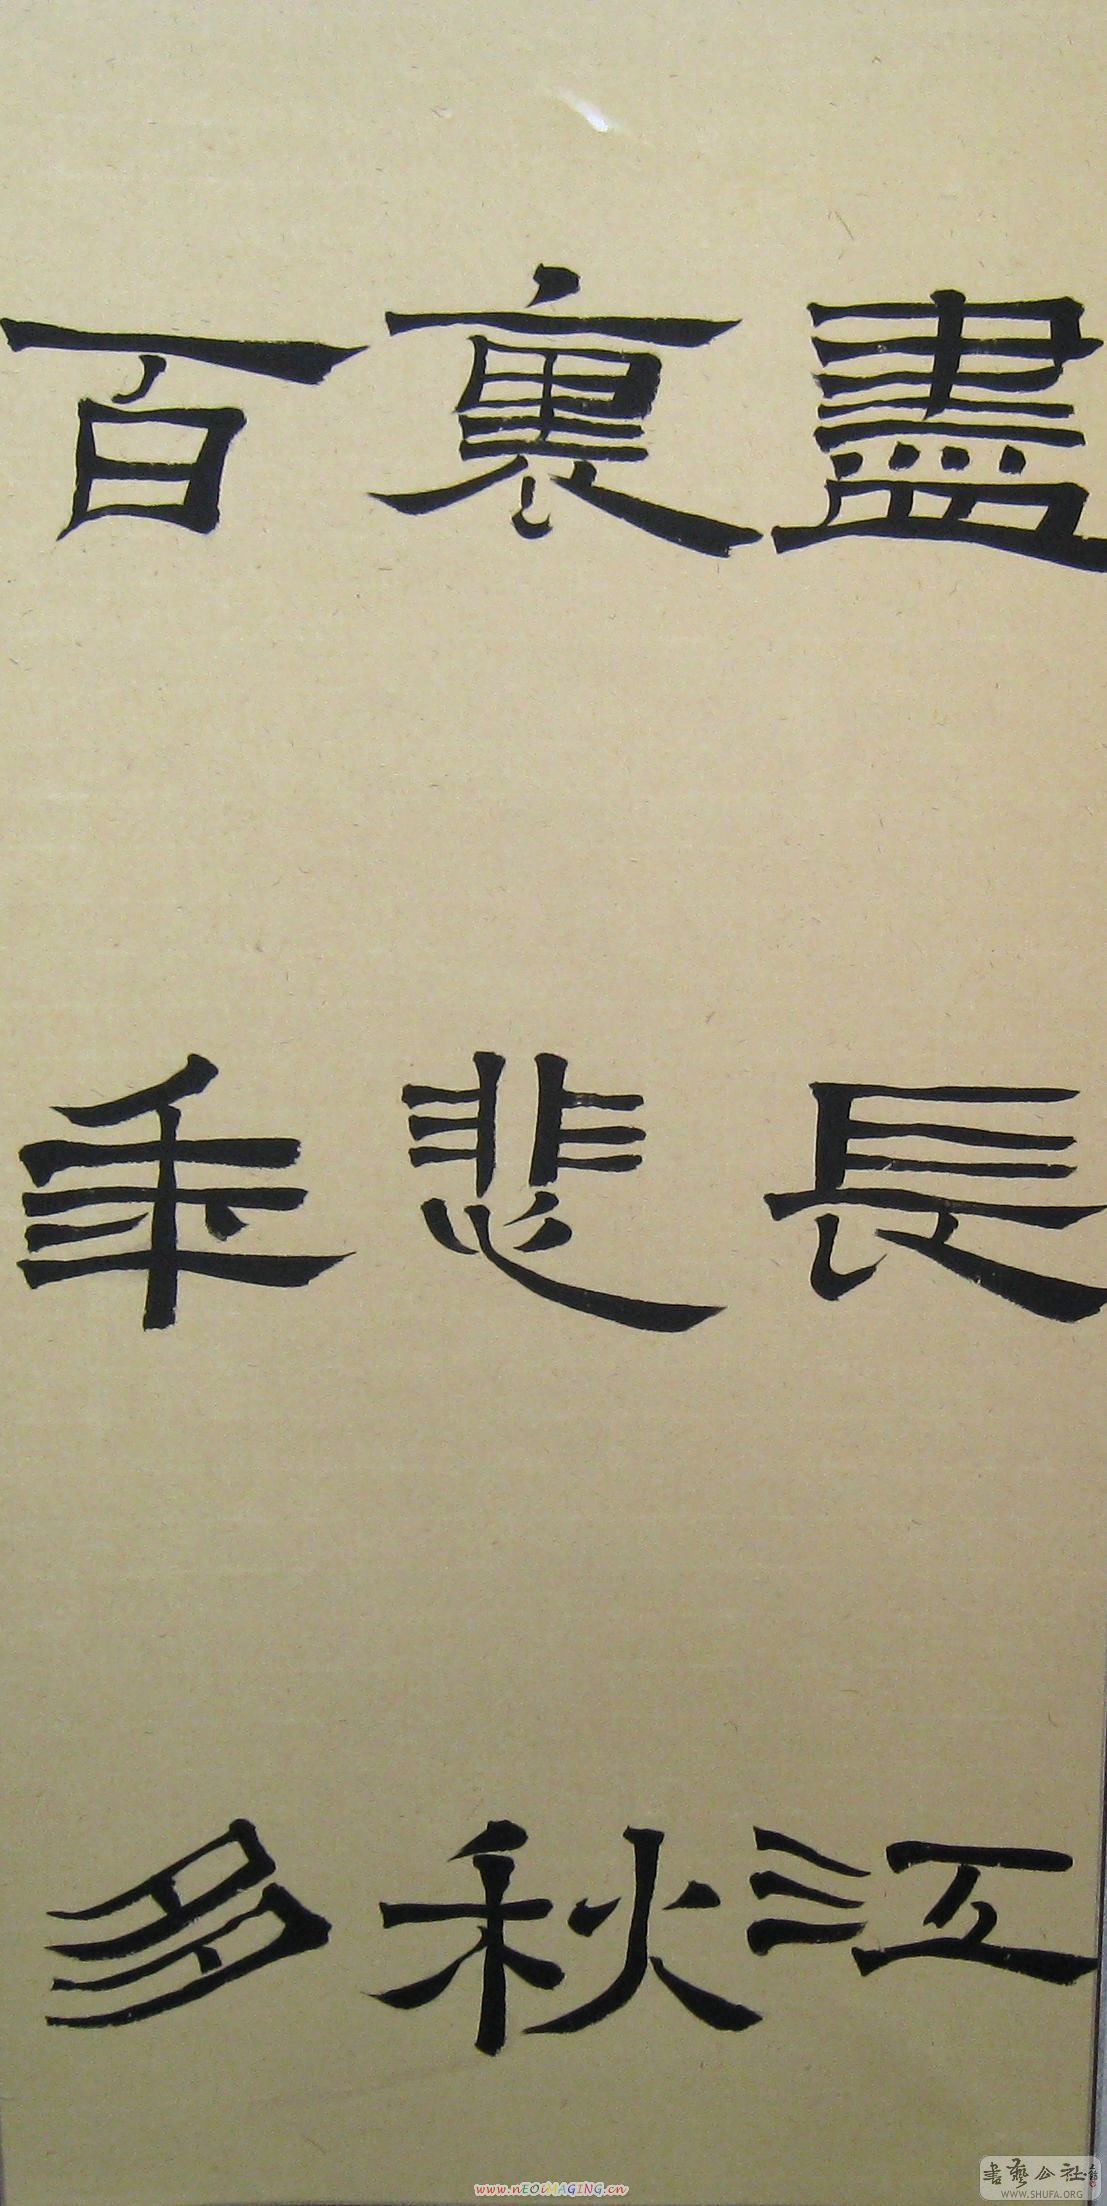 盡長江
裏悲秋
百年多
www.nEOiMAGING.cn
書藝公社
WWW.SHUFA.ORG